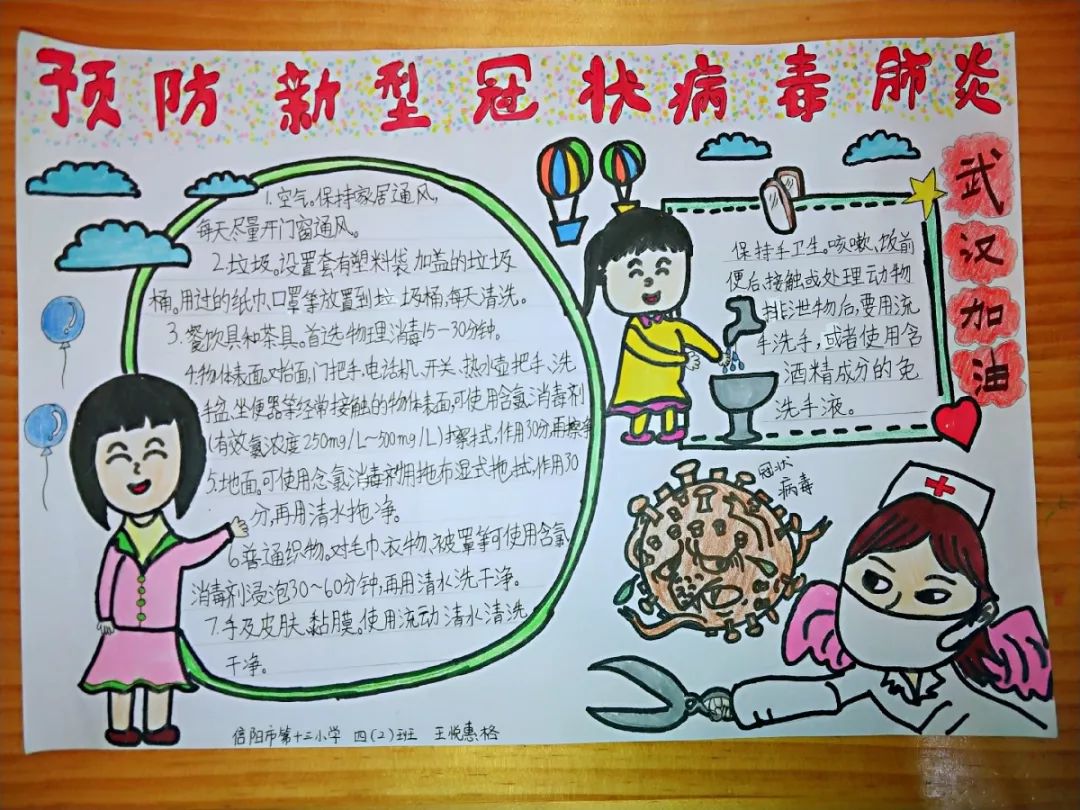 预防新型冠状病毒肺炎
1.空气。保持家居通风,
每天尽量开门窗通风。
2.垃圾。设置套有塑料袋加盖的垃圾
桶。用过的纸巾、口罩等放置到垃圾桶,每天清洗。
3.餐饮具和茶具。首选物理消毒15~30分钟。
4.物体表面。对台面,门把手、电话机、开关、热水壶把手、洗
手盆、坐便器等经常接触的物体表面,可使用含氯消毒剂
(有效氯浓度250mg/L~500mg/L)擦拭,作用30分再擦净
5.地面。可使用含氯消毒剂用拖布湿式拖拭,作用30
分,再用清水拖净。
6.普通织物。对毛巾、衣物、被罩等可使用含氯
消毒剂浸泡30~60分钟,再用清水洗干净。
7.手及皮肤、黏膜。使用流动清水清洗
干净。
信阳市第十三小学 四(2)班 王悦惠格
保持手卫生。咳嗽、饭前
便后、接触或处理动物
排泄物后,要用流
手洗手,或者使用含
酒精成分的免
洗手液。
武汉加油
冠状
病毒